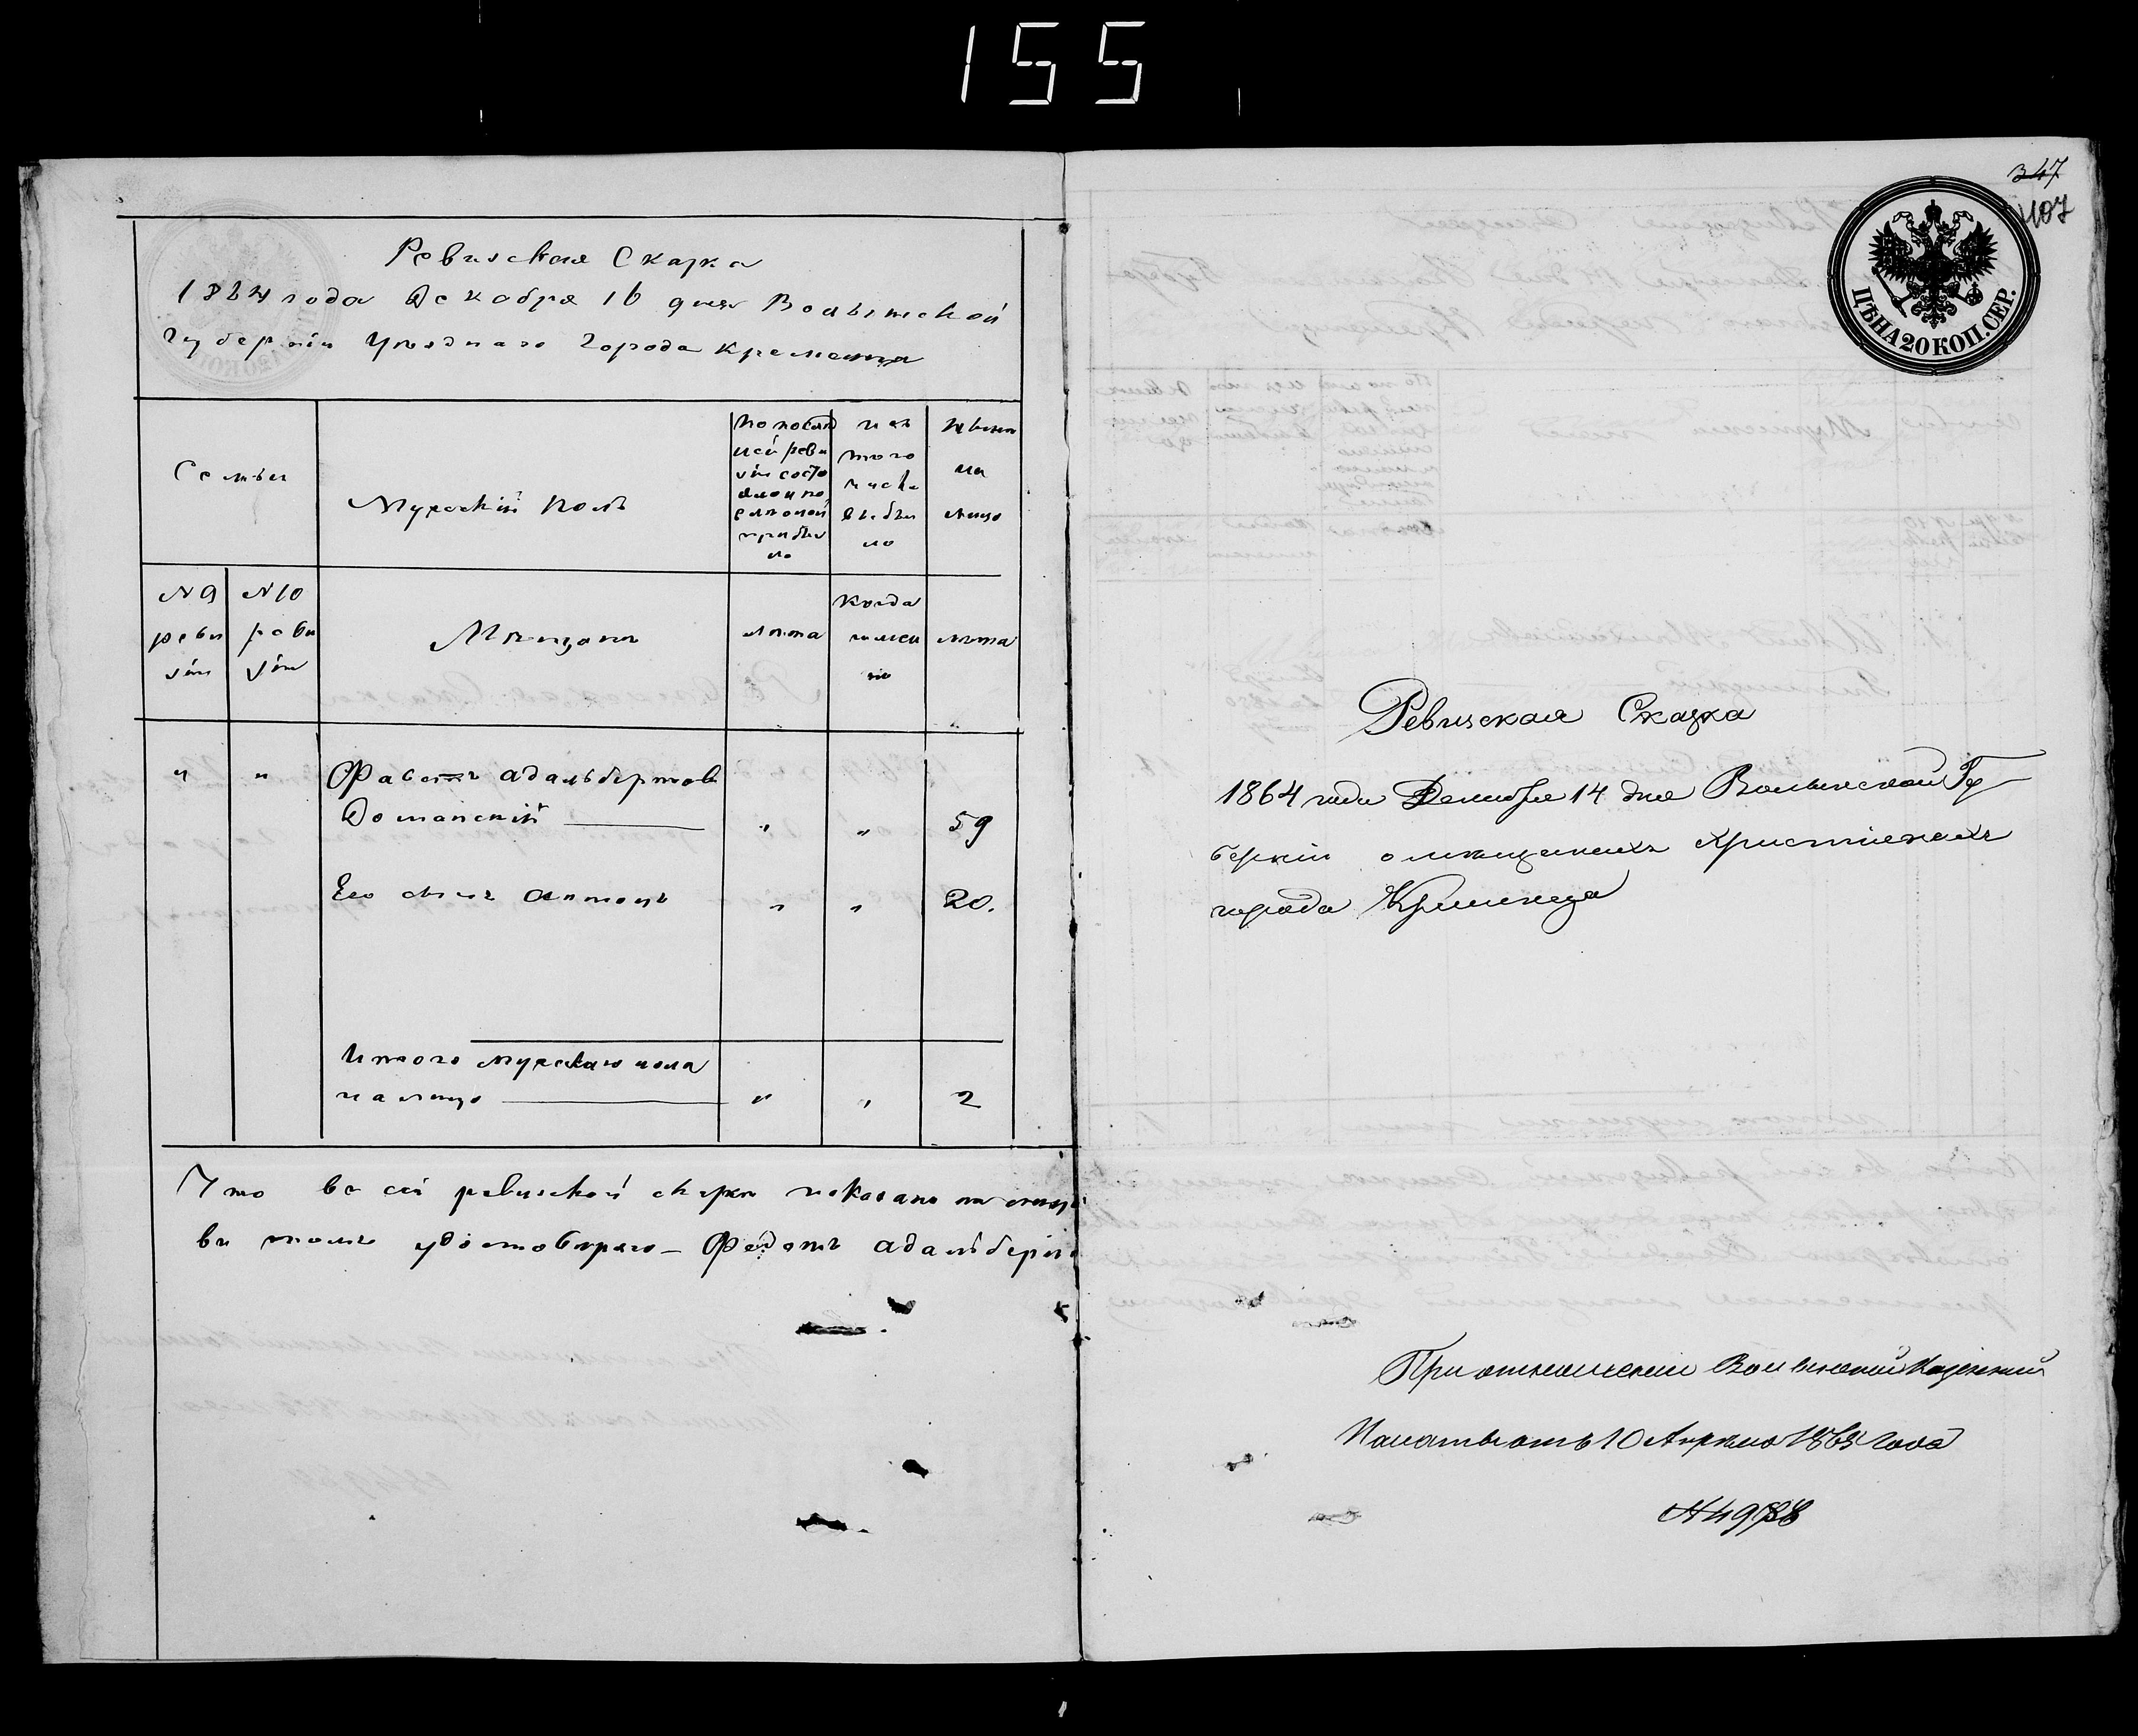 155
Ревизская Сказка
1864 года Декабря 16 дня Волынской
губерніи Уѣзднаго города Кременца
Семьи
Мужескій полъ
По послѣд
ней реви
зіи состо
яло и по
оной
прибы
ло
изъ
того
числа
выбы
ло
Нынѣ
на
лицо
N 9
реви
зіи
N 10
реви
зіи
Мѣщане
лѣта
когда
именно
лѣта
" "
Адальбертовъ
Доманскій " " 59
Его сынъ Антонъ " " 20.
Итого мужескаго пола
на лицо " " 2
Что въ сей ревизской сказки показано
въ томъ удостовѣряю – Федотъ Адальберто
347
107
ЦѢНА 20 КОП. СЕР.
Ревизская Сказка
1864 года Декабря 14 дня Волынской Гу
берніи о мѣщанахъ христіанахъ
города Кременца
При отношеніи Волынской Казенной
Палаты отъ 10 Апрѣля 1865 года